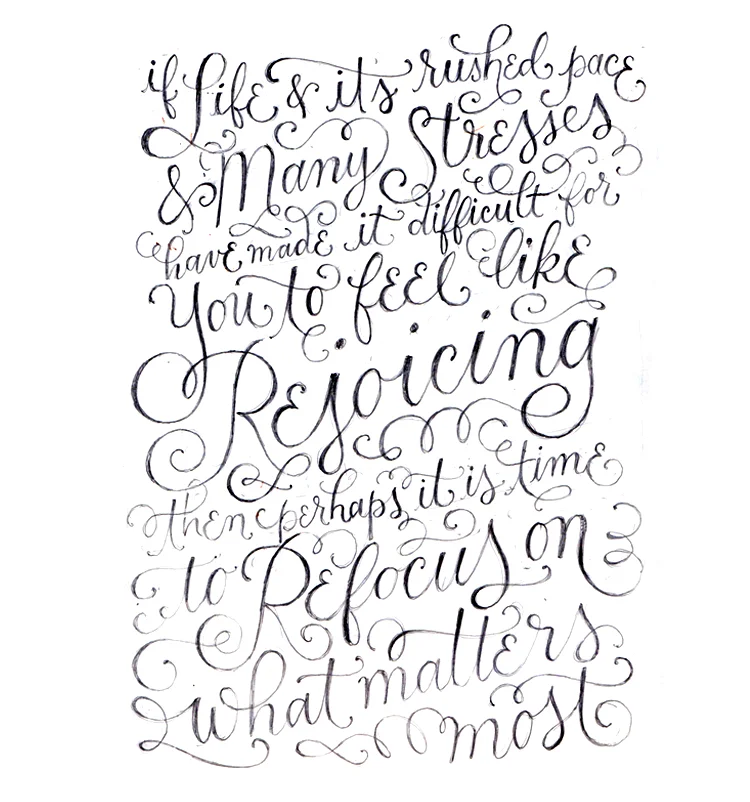 if Life & it's rushed pace
& Many Stresses
have made it difficult for
You to feel like
Rejoicing
then perhaps it is time
to Refocus on
what matters
most